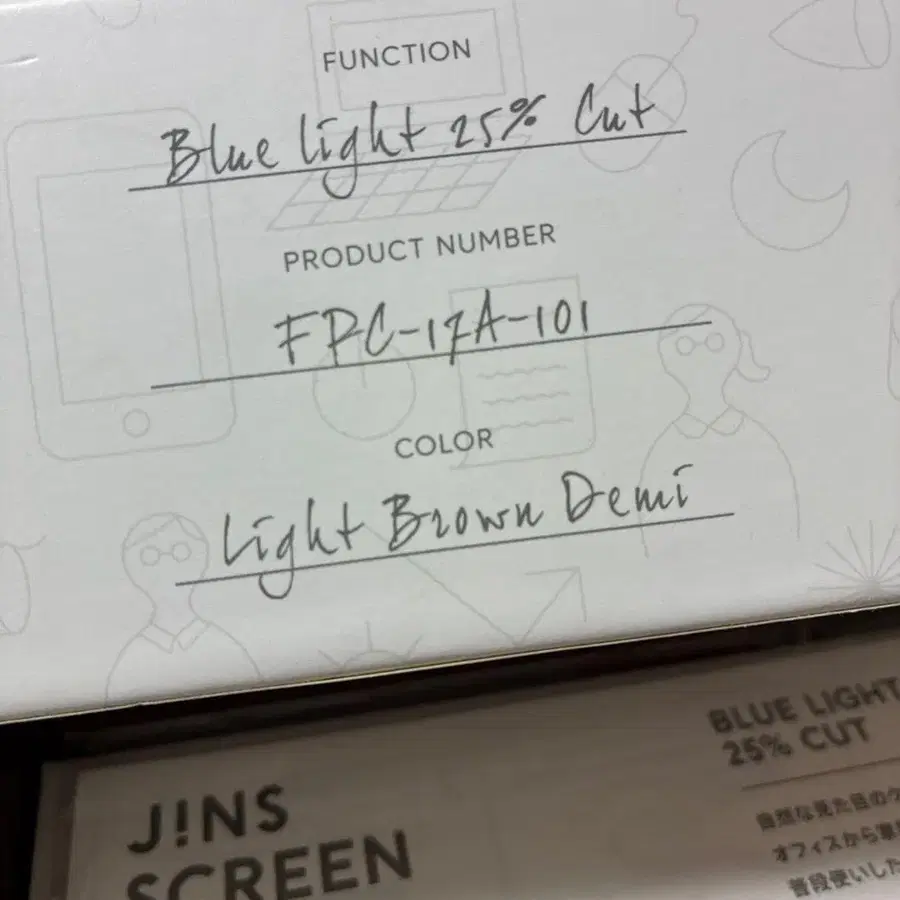 FUNCTION
Blue light 25% Cut
PRODUCT NUMBER
FPC-17A-101
COLOR
Light Brown Demi
J!NS
SCREEN
BLUE LIGHT
25% CUT
自然な見た目のク
オフィスから家
普段使いした